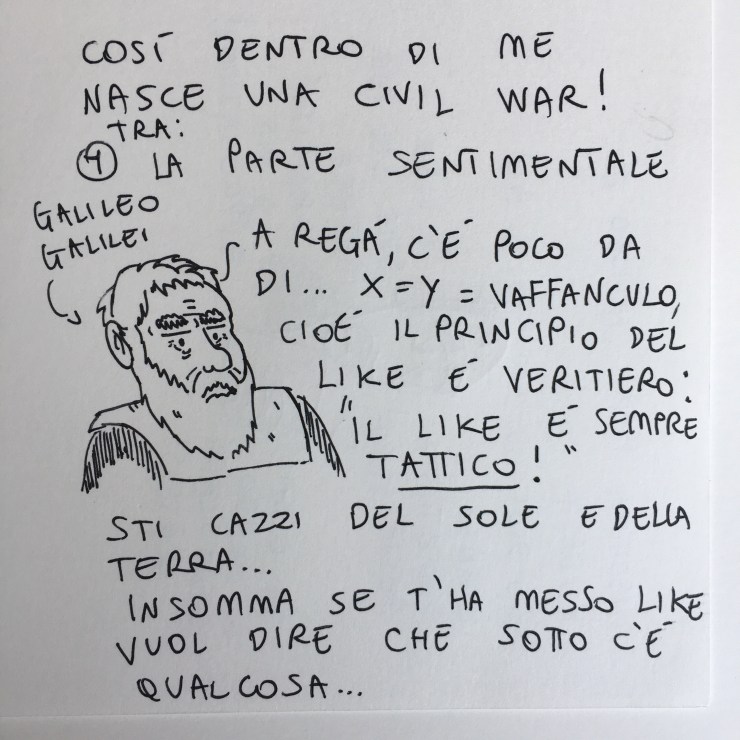 COSÍ DENTRO DI ME
NASCE UNA CIVIL WAR!
TRA:
1 LA PARTE SENTIMENTALE
GALILEO
GALILEI
A REGÁ, C'É POCO DA
DI... X=Y = VAFFANCULO,
CIOÉ IL PRINCIPIO DEL
LIKE É VERITIERO:
"IL LIKE É SEMPRE
TATTICO!"
STI CAZZI DEL SOLE E DELLA
TERRA...
INSOMMA SE T'HA MESSO LIKE
VUOL DIRE CHE SOTTO C'É
QUALCOSA...